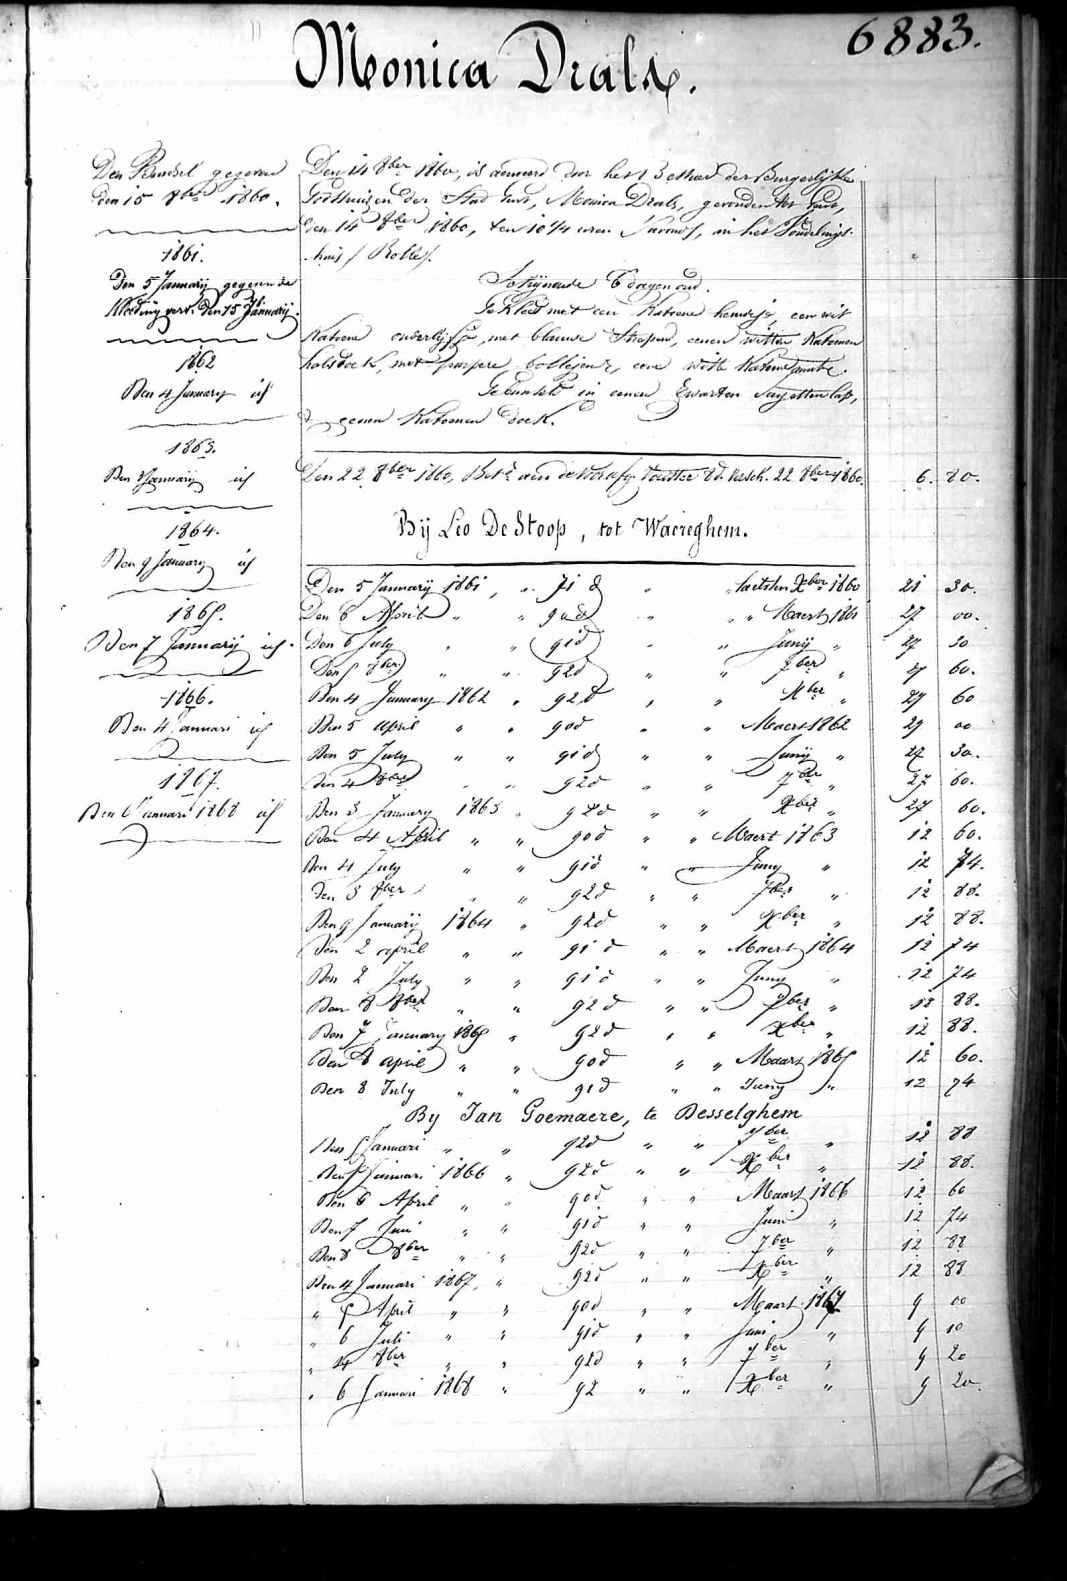 6883.
Monica Drals.
Den Bundsel gegeven
den 15 8ber 1860.
1861.
Den 5 January gegeven de
Kleeding verv. den 15 January.
1862
Den 4 January id
1863.
Den 3 January id
1864.
Den 9 January id
1865.
Den 7 Januarij id.
1866.
Den 4 Januari id
1867.
Den 6 Januari 1868 id
Den 14 8ber 1860, is aenveerd door het Bestuer der Burgerlyke
Godshuizen der Stad Gent, Monica Drals, gevonden ter Stade,
den 14 8ber 1860, ten 10 1/4 uren 's avonds, in het Vondelings-
huis / Rolle /.
Schynende 6 dagen oud.
Gekleed met een Katoene hemdeje, een wit
Katoene onderlyfje, met blauwe Strepen, eenen witten Katoenen
halsdoek, met purpere bollejens, eene witte Katoene muts.
Gebunseld in eenen Zwarten Sayetten lap,
& eenen Katoenen doek.
Den 22 8ber 1860, Bet. aen de Vorsch. 22 8ber 1860. 6. 80.
Bij Leo De Stoop, tot Waereghem.
Den 5 Januarij 1861, " 71 d " " laetsten Xber 1860 21 30.
Den 6 April " " 90 d " " Maert 1861 27 00.
Den 6 July " " 91 d " " Junij " 27 30
Den 5 8ber " " 92 d " " 7ber " 27 60.
Den 4 January 1862 " 92 d " " Xber " 27 60
Den 5 april " " 90 d " " Maert 1862 27 00
Den 5 July " " 91 d " " Junij " 27 30.
Den 4 8ber " " 92 d " " 7ber " 27 60.
Den 3 January 1863 " 92 d " " Xber " 27 60.
Den 4 April " " 90 d " " Maert 1863 12 60.
Den 4 July " " 91 d " " Juny " 12 74.
Den 3 8ber " " 92 d " " 7ber " 12 88.
Den 9 January 1864 " 92 d " " Xber " 12 88.
Den 2 april " " 91 d " " Maert 1864 12 74
Den 2 July " " 91 d " " Juny " 12 74
Den 8 8ber " " 92 d " " 7ber " 12 88.
Den 7 January 1865 " 92 d " " Xber " 12 88.
Den 8 april " " 90 d " " Maart 1865 12 60.
Den 8 July " " 91 d " " Juny " 12 74
By Jan Goemaere, te Desselghem
Den Januari " " 92 d " " 7ber " 12 88
Den Januari 1866 " 92 d " " Xber " 12 88.
Den 6 April " " 90 d " " Maart 1866 12 60
Den 7 Juni " " 91 d " " Juni " 12 74
Den 8 8ber " " 92 d " " 7ber " 12 88
Den 4 Januari 1867, " 92 d " " Xber " 12 88
" 5 April " " 90 d " " Maart 1867 9 00
" 6 Juli " " 91 d " " Juni " 9 10
" 4 8ber " " 92 d " " 7ber " 9 20
" 6 Januari 1868 " 92 " " Xber " 9 20.